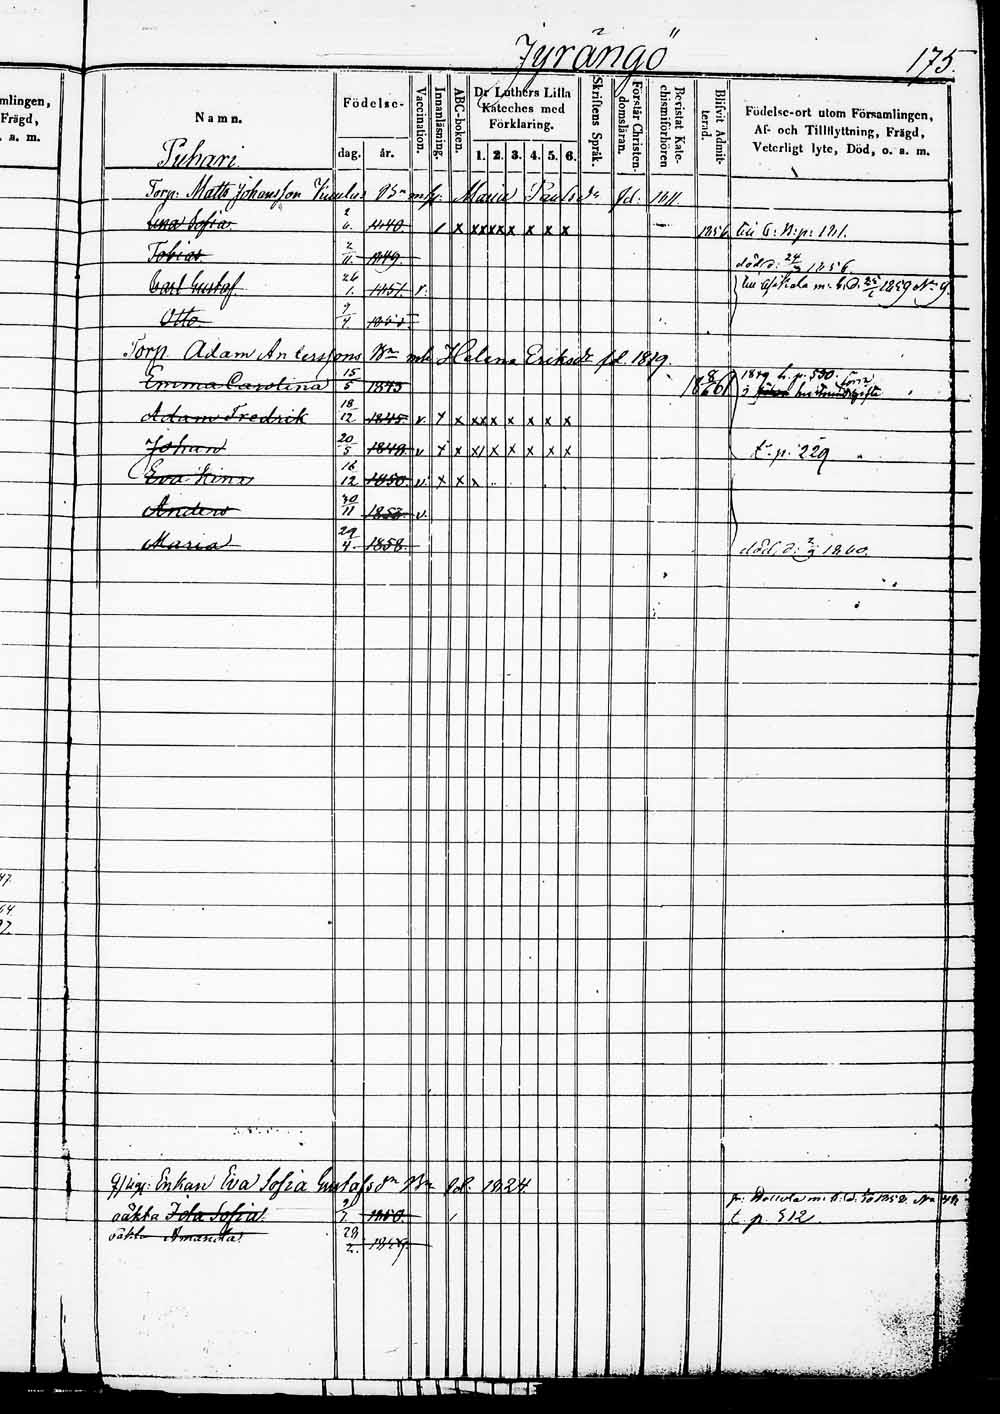 Jyrängö 175.
mlingen,
Frägd,
. a. m.
Namn.
Födelse-
dag. år.
Vaccination.
Innanläsning.
ABC-boken.
Dr Luthers Lilla
Kateches med
Förklaring.
1. 2. 3. 4. 5. 6.
Skriftens Språk.
Förstår Christen-
domsläran.
Bevistat Kate-
chismiförhören
Blifvit Admit-
terad.
Födelse-ort utom Församlingen,
Af- och Tillflyttning, Frägd,
Veterligt lyte, Död, o. s. m.
Puhari.
Torp: Matts Johansson Maria Paulsdr fd:
Lina Sofia 2/6. 1840. / x xx xx x x x x 1856 till
Tobias 2/11. 1849. död d: 24/ 1856.
Carl Gustaf 26/1. 1851. v. 1859 No 9.
Otto. 9/4
Torp. Adam Anderssons Helena Eriksdr fd. 1819.
Emma Carolina 15/5 1843 1819 h. p. 530.
Adam Fredrik 18/12 1845. v. x x xx x x x x x
Johan 20/5 1849. v x x x/ x x x x x t. p. 229
Eva Stina 16/12 1850. v. x x x
Anders 30/11 1853. v.
Maria 29/4. 1858. död. d: 2/9 1860.
47.
64.
97.
Enkan Eva Sofia Gustafsdr fd. 1824.
oäkta Ida Sofia. 1850. / t. p. 512.
oäkta Amanda. 28/2. 1859.